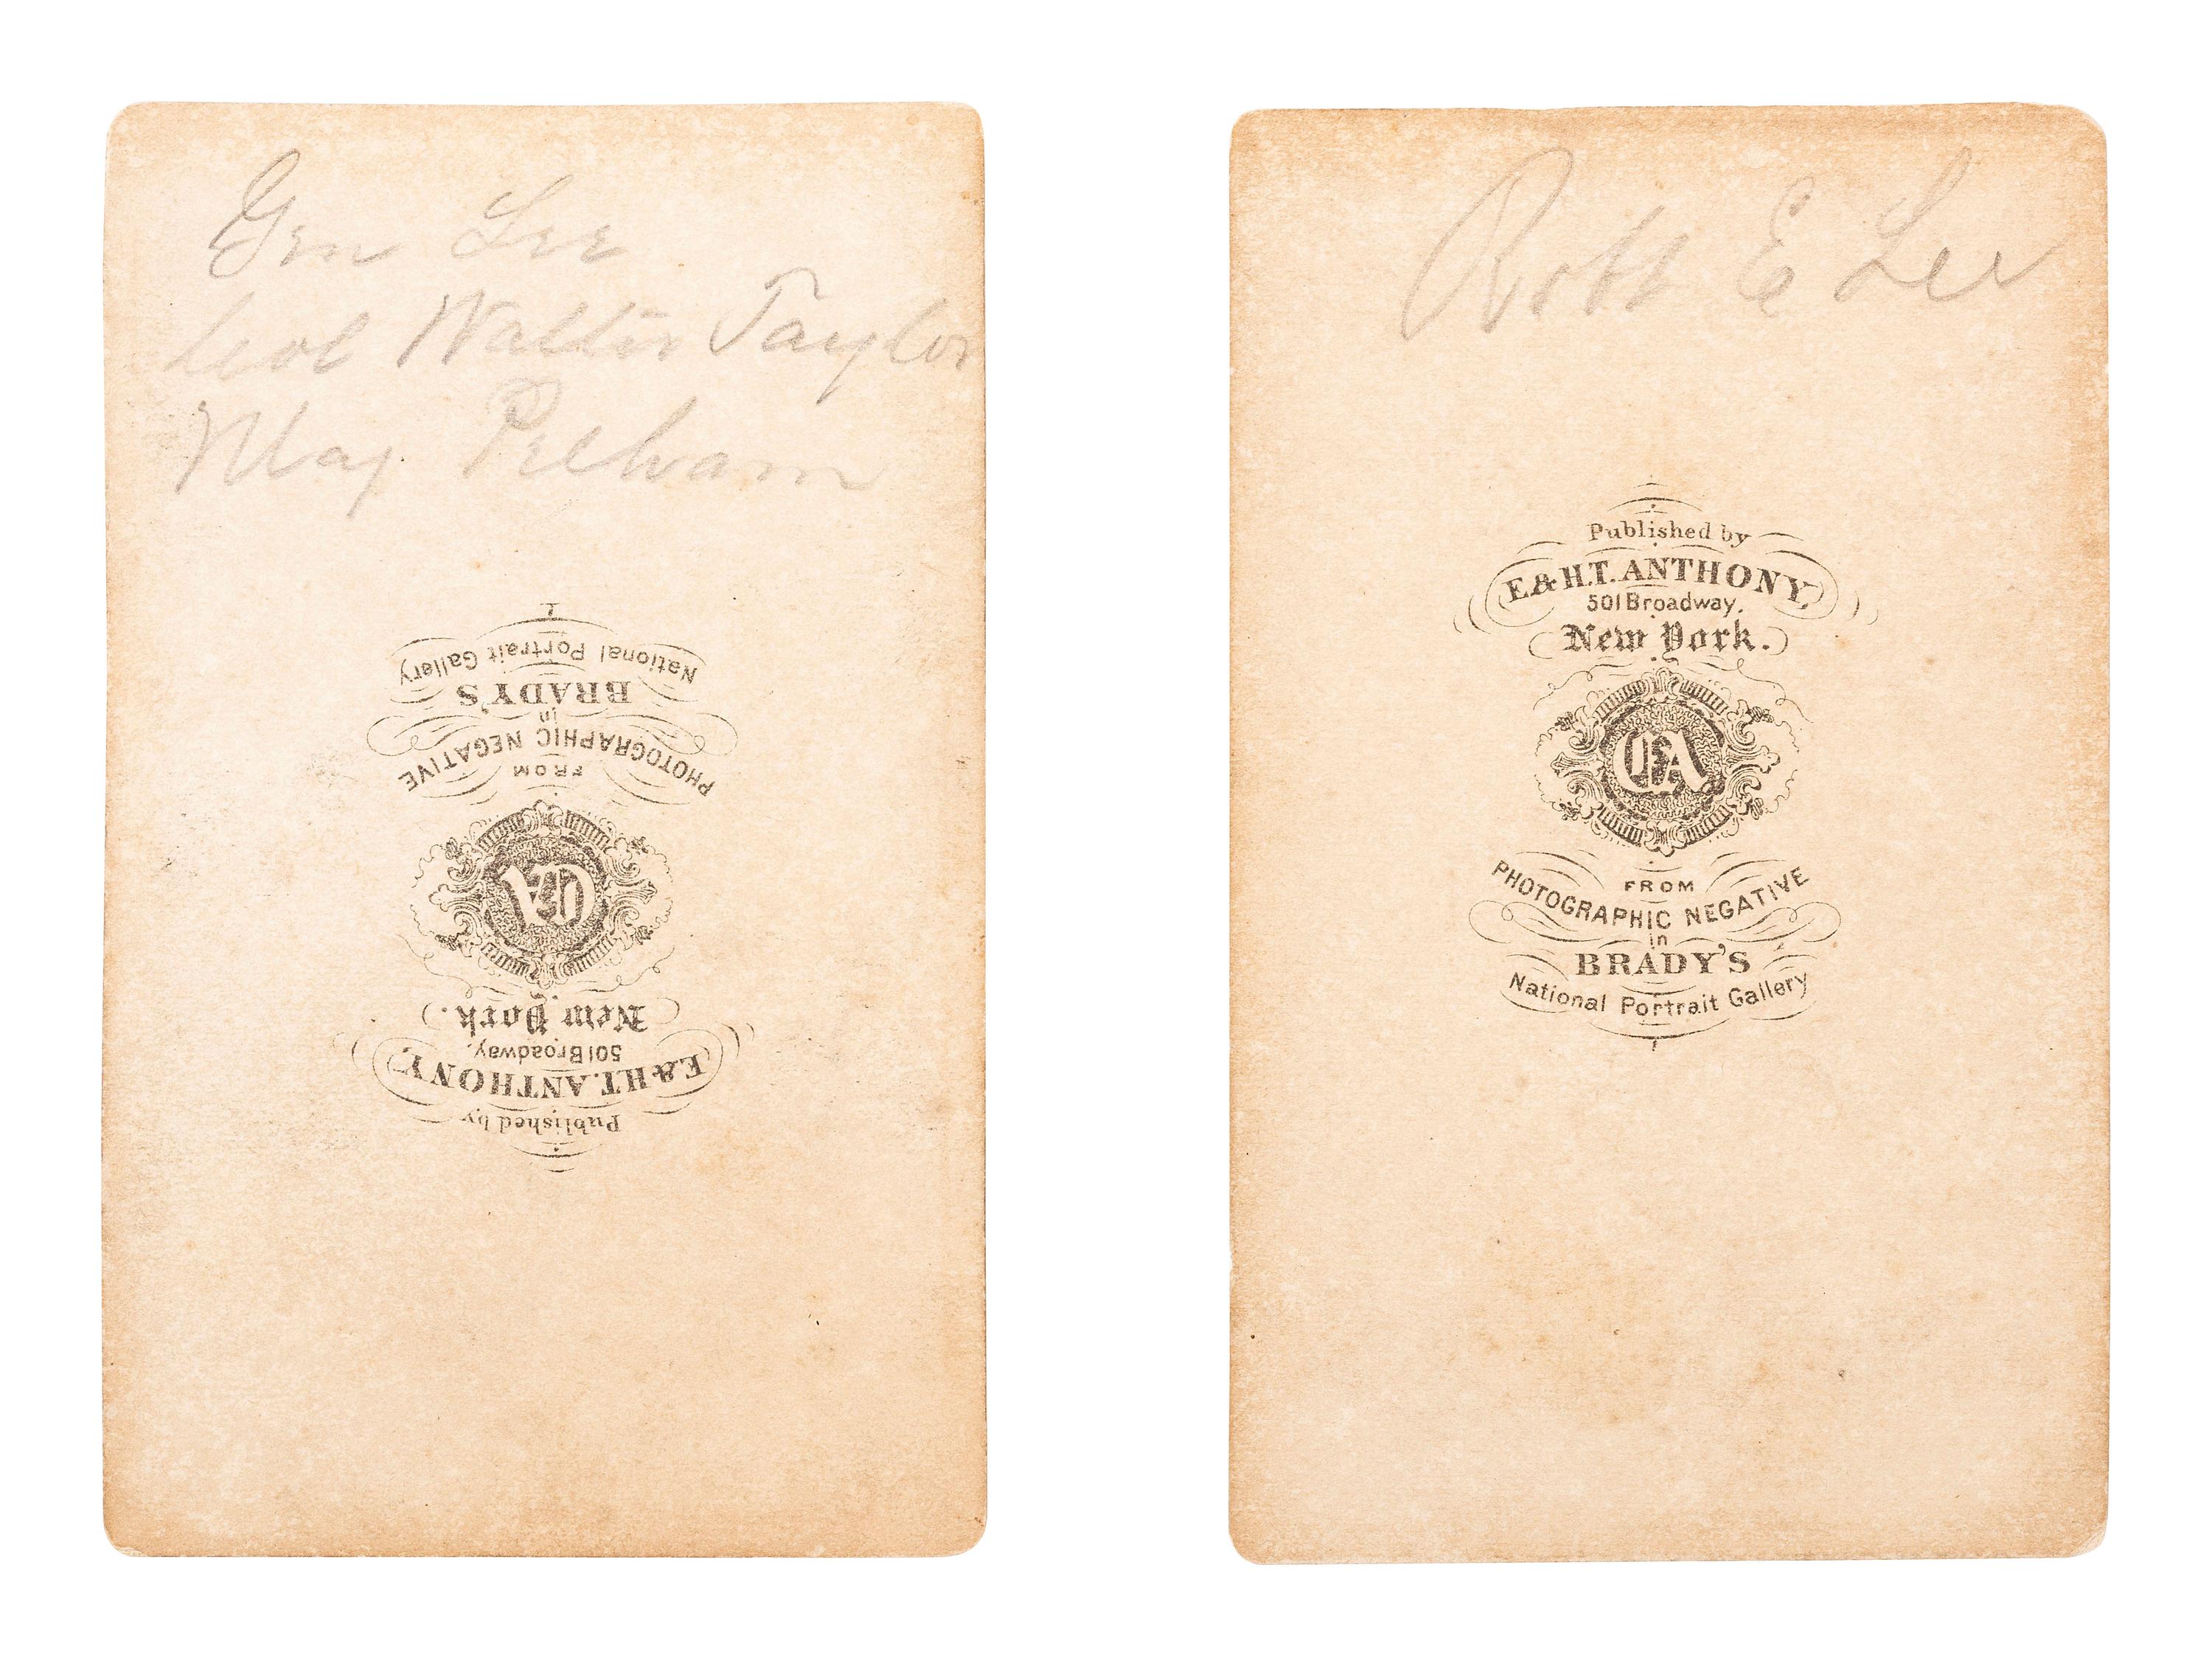 Gen Lee
Col Walter Taylor
Maj Pelham
National Portrait Gallery
BRADY'S
in
PHOTOGRAPHIC NEGATIVE
FROM
EA
New York.
501 Broadway.
E. & H.T. ANTHONY,
Published by
Robt E Lee
Published by
E. & H.T. ANTHONY,
501 Broadway.
New York.
EA
FROM
PHOTOGRAPHIC NEGATIVE
in
BRADY'S
National Portrait Gallery